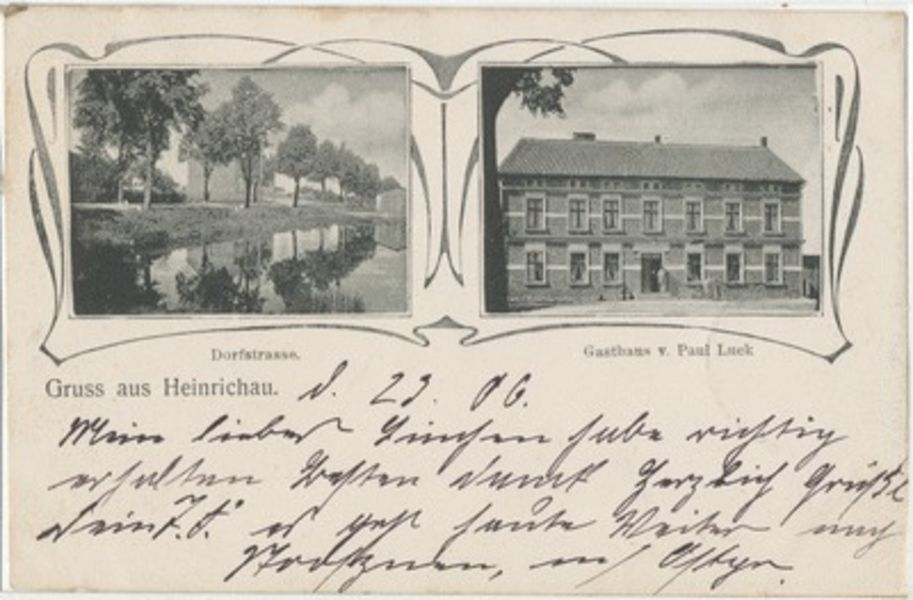 Dorfstrasse.
Gasthaus v. Paul Luck
Gruss aus Heinrichau. d. 23. 06.
Mein liebes haben richtig
erhalten Besten Dank Herzlich Grüßt
Dein F. S. es geht heute Weiter nach